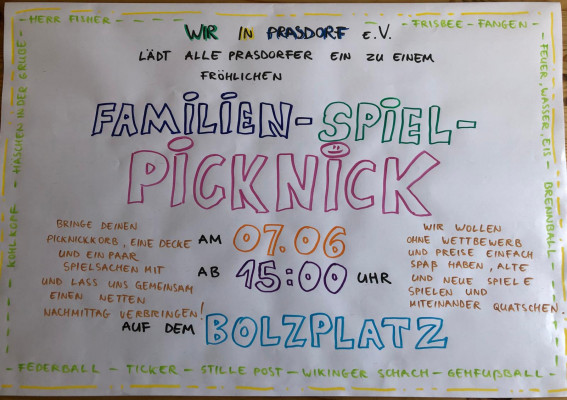 - HERR FISHER -
- FRISBEE - FANGEN -
WIR IN PRASDORF e.V.
LÄDT ALLE PRASDORFER EIN ZU EINEM
FRÖHLICHEN
FAMILIEN-SPIEL-
PICKNICK
BRINGE DEINEN
PICKNICKKORB, EINE DECKE
UND EIN PAAR
SPIELSACHEN MIT
UND LASS UNS GEMEINSAM
EINEN NETTEN
NACHMITTAG VERBRINGEN!
AM 07.06
AB 15:00 UHR
AUF DEM BOLZPLATZ
WIR WOLLEN
OHNE WETTBEWERB
UND PREISE EINFACH
SPAß HABEN, ALTE
UND NEUE SPIELE
SPIELEN UND
MITEINANDER QUATSCHEN.
KOHLKOPF - HÄSCHEN IN DER GRUBE -
FEUER, WASSER, EIS - BRENNBALL -
- FEDERBALL - TICKER - STILLE POST - WIKINGER SCHACH - GEMFUßBALL -